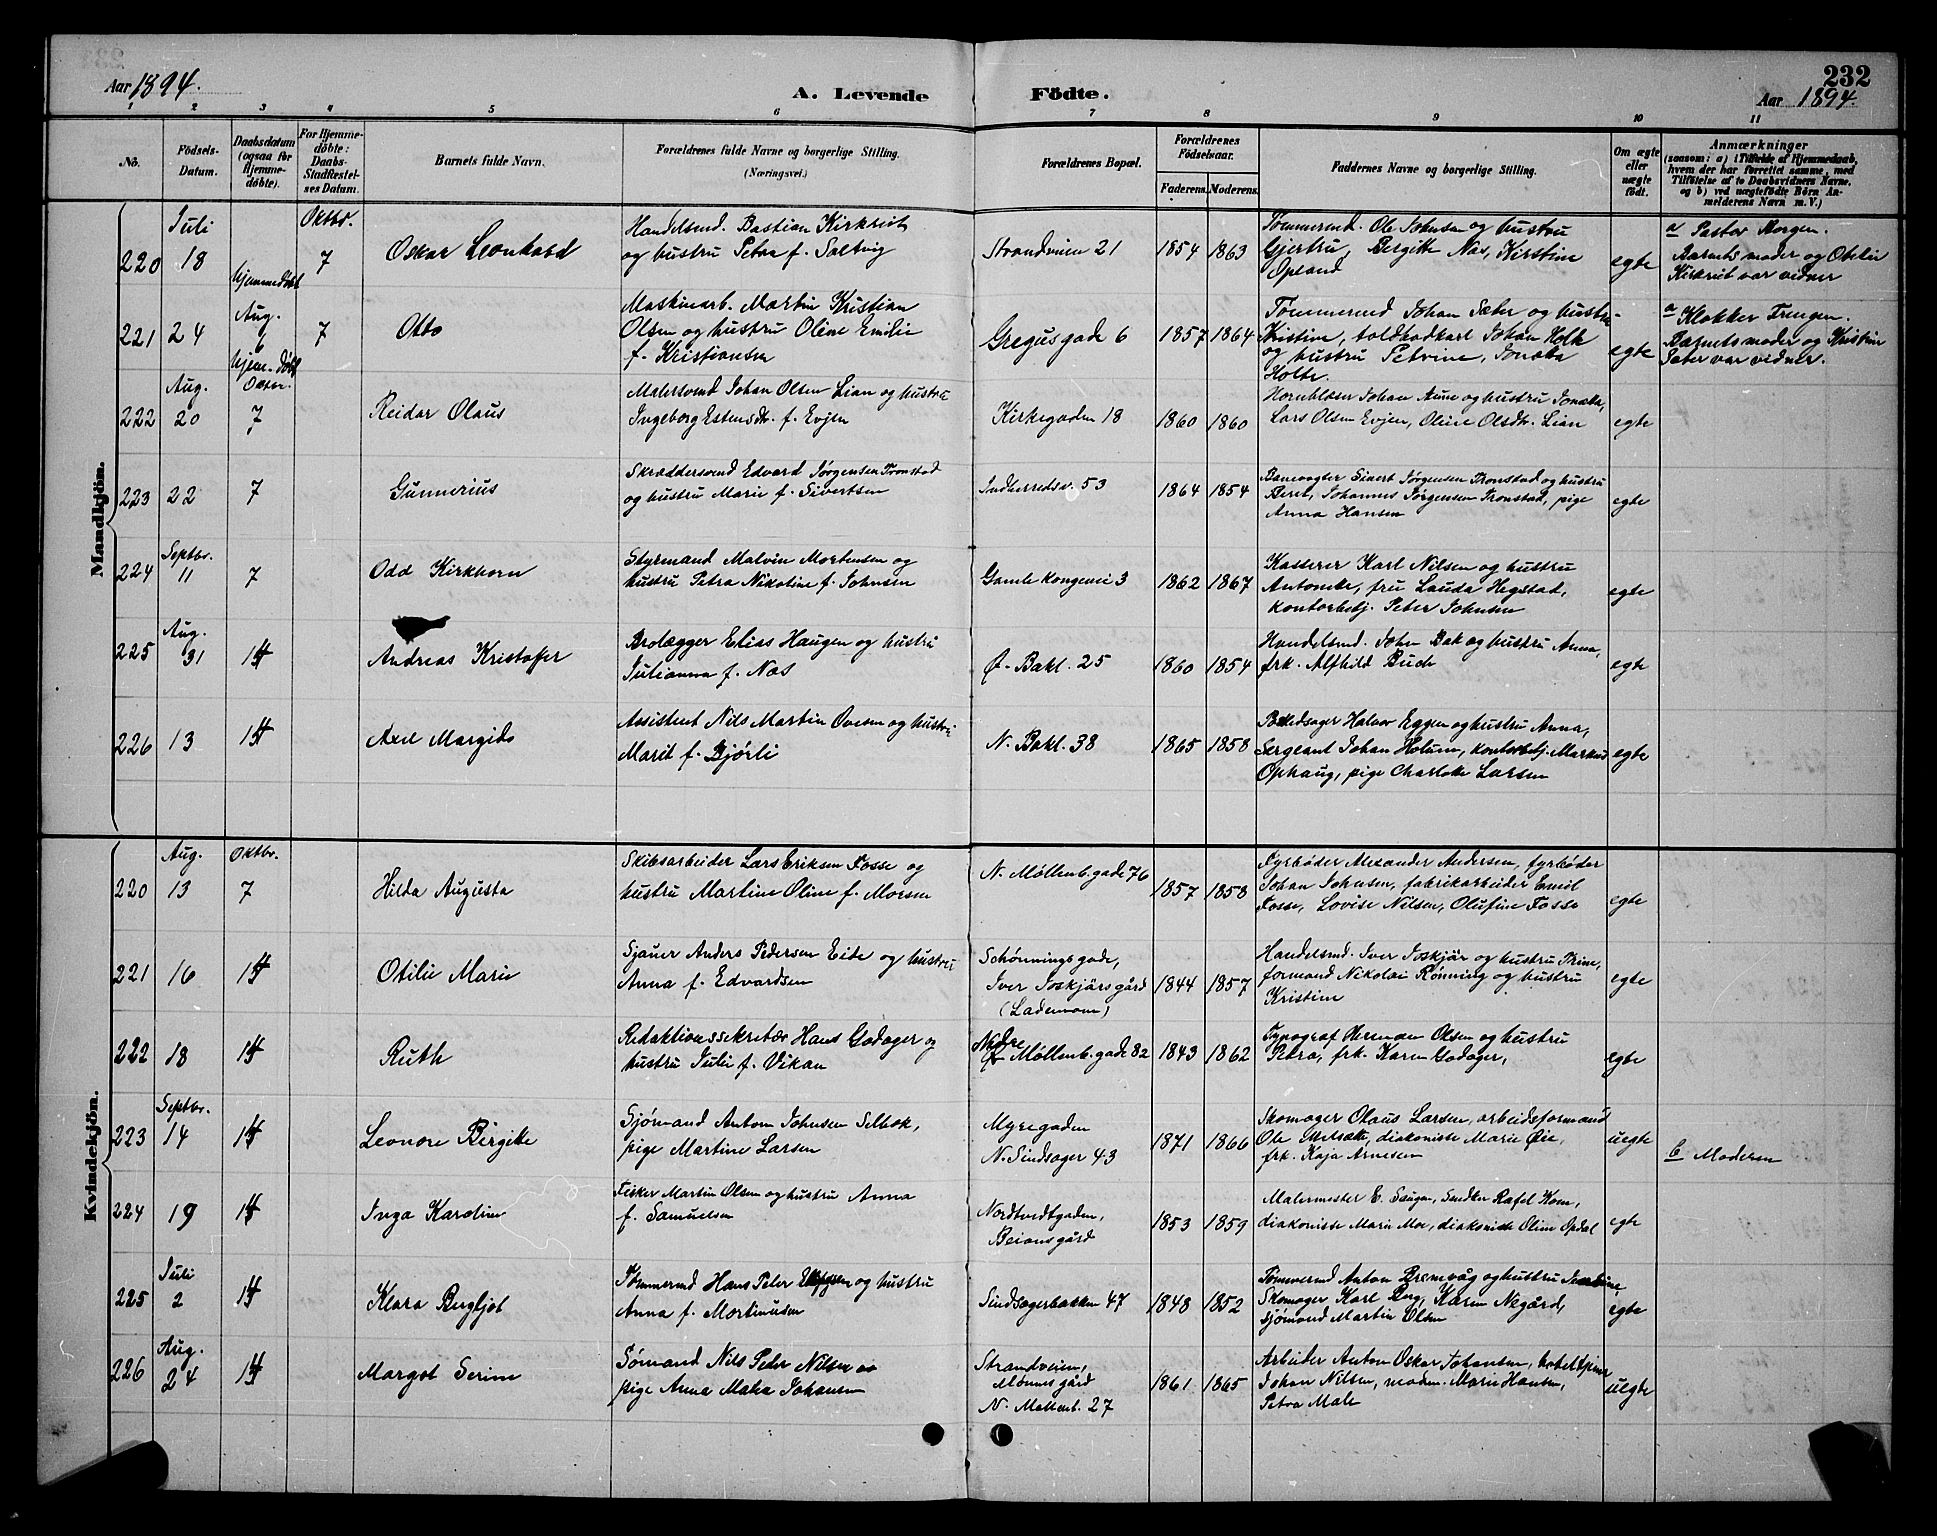 232
Aar 1894.
A. Levende Födte.
Aar 1894.
1 2 3 4 5 6 7 8 9 10 11
No.
Födsels-
Datum.
Daabsdatum
(ogsaa for
Hjemme-
døbte).
For Hjemme-
døbte:
Daabs-
Stadfæstel-
ses Datum.
Barnets fulde Navn.
Forældrenes fulde Navne og borgerlige Stilling.
(Næringsvei.)
Forældrenes Bopæl.
Forældrenes
Fødselsaar.
Faderens. Moderens.
Faddernes Navne og borgerlige Stilling.
Om ægte
eller
uægte
født.
Anmærkninger
(saasom: a) i Tilfælde af Hjemmedaab,
hvem der har forrettet samme, med
Tilföielse af to Daabsvidners Navne,
og b) ved uægtefødte Børn An-
melderens Navn m. V.)
Mandkjön.
Juli
Oktbr.
220 18
hjemmedøbt
7
Oskar Leonhard
Handelsmd. Bastian Kirkreit
og hustru Petra f. Soltvig
Strandveien 21
1854 1863
Tømmermd. Ole Johnsen og hustru
Gjertru, Bergitte Næs, Kirstine
Opland
egte
a Pastor Horgen.
Barnets moder og Otelie
Kirkreit var vidner
221 24
Aug.
6
hjem.døbt
7
Otto
Maskinarb. Martin Kristian
Olsen og hustru Oline Emilie
f. Kristiansen
Gregusgade 6
1857 1864
Tømmermd Johan Sæter og hustru
Kristine, toldbodkarl Johan Holte
og hustru Petrine, Jonetta
Holte.
egte
a Klokker Trengen.
Barnets moder og Kristine
Sæter var vidner.
Aug.
Oktbr.
222 20 7
Reidar Olaus
Malersvend Johan Olsen Lian og hustru
Ingeborg Estensdtr. f. Evjen
Kirkegaden 18
1860 1860
Hornblæser Johan Aune og hustru Jonetta,
Lars Olsen Evjen, Oline Olsdtr. Lian
egte
223 22 7
Gunnerius
Skræddersvend Edvard Jørgensen Tronstad
og hustru Marie f. Sivertsen
Indherredsv. 53
1864 1854
Banevogter Sivert Jørgensen Tronstad og hustru
Beret, Johannes Jørgensen Tronstad, pige
Anna Hansen
egte
Septbr.
224 11 7
Odd Kirkhorn
Styrmand Malvin Mortensen og
hustru Petra Nikoline f. Johnsen
Gamle Kongevei 3
1862 1867
Kasserer Karl Nilsen og hustru
Antonette, fru Lauda Hegstad,
kontorbetj. Peter Johnsen
egte
Aug.
225 31 14
Andreas Kristoffer
Brolægger Elias Haugen og hustru
Julianna f. Næs
Ø. Bakl. 25
1860 1854
Handelsmd. John Bak og hustru Anna,
frk. Alfhild Buch
egte
226 13 14
Axel Margido
Assistent Nils Martin Ovesen og hustru
Marit f. Bjørli
N. Bakl. 38
1865 1858
Halvor Eggen og hustru Anna,
Sergeant Johan Holum, kontorbetj. Markus
Ophaug, pige Charlotte Larsen
egte
Kvindekjön.
Aug. Oktbr.
220 13 7
Hilda Augusta
Skibsarbeider Lars Eriksen Fosse og
hustru Martine Oline f. Moesen
N. Møllenb. gade 76
1857 1858
Fyrbøder Alexander Andersen, fyrbøder
Johan Johnsen, fabrikarbeider Emil
Fosse, Lovise Nilsen, Olufine Fosse
egte
221 16 14
Otilie Marie
Sjauer Anders Pedersen Eide og hustru
Anna f. Edvardsen
Schønningsgade,
Iver Foskjærs gård
(Lademoen)
1844 1857
Handelsmd. Iver Foskjær og hustru Trine,
formand Nikolai Rønning og hustru
Kristine
egte
222 18 14
Ruth
Redaktionssekretær Hans Godager og
hustru Julie f. Vikan
Nedre
Møllenb. gade 82
1843 1862
Typograf Herman Olsen og hustru
Petra, frk. Karen Godager,
egte
Septbr.
223 14 14
Leonore Birgitte
Sjømand Anton Johnsen Selbok,
pige Martine Larsen
Myregaden
N. Sindsager 43
1871 1866
Skomager Olaus Larsen, arbeidsformand
Ole, diakonisse Marie Øie,
frk. Kaja Arnesen
uegte
b Moderen
224 19 14
Inga Karoline
Fisker Martin Olsen og hustru Anna
f. Samuelsen
Nordtvedtgaden,
Beiansgård
1853 1859
Malermester E. Saugen, Snedker Rafel Kom,
diakonisse Marie Moe, diakonisse Oline Opdal
egte
Juli
225 2 14
Klara Bergljot
Tømmermd Hans Peter og hustru
Anna f. Mortinusen
Sindsagerbakken 47
1848 1852
Tømmermd Anton Bremvåg og hustru
Skomager Karl Berg, Karen Negård,
sjømand Martin Olsen
egte
Aug.
226 24 14
Margot Serine
Sømand Nils Peder Nilsen og
pige Anna Maha Johansen
Strandveien,
Mønnes gård
N. Møllenb. 27
1861 1865
Arbeider Anton Oskar Johansen,
Johan Nilsen, madm. Marie Hansen,
Petra Male
uegte